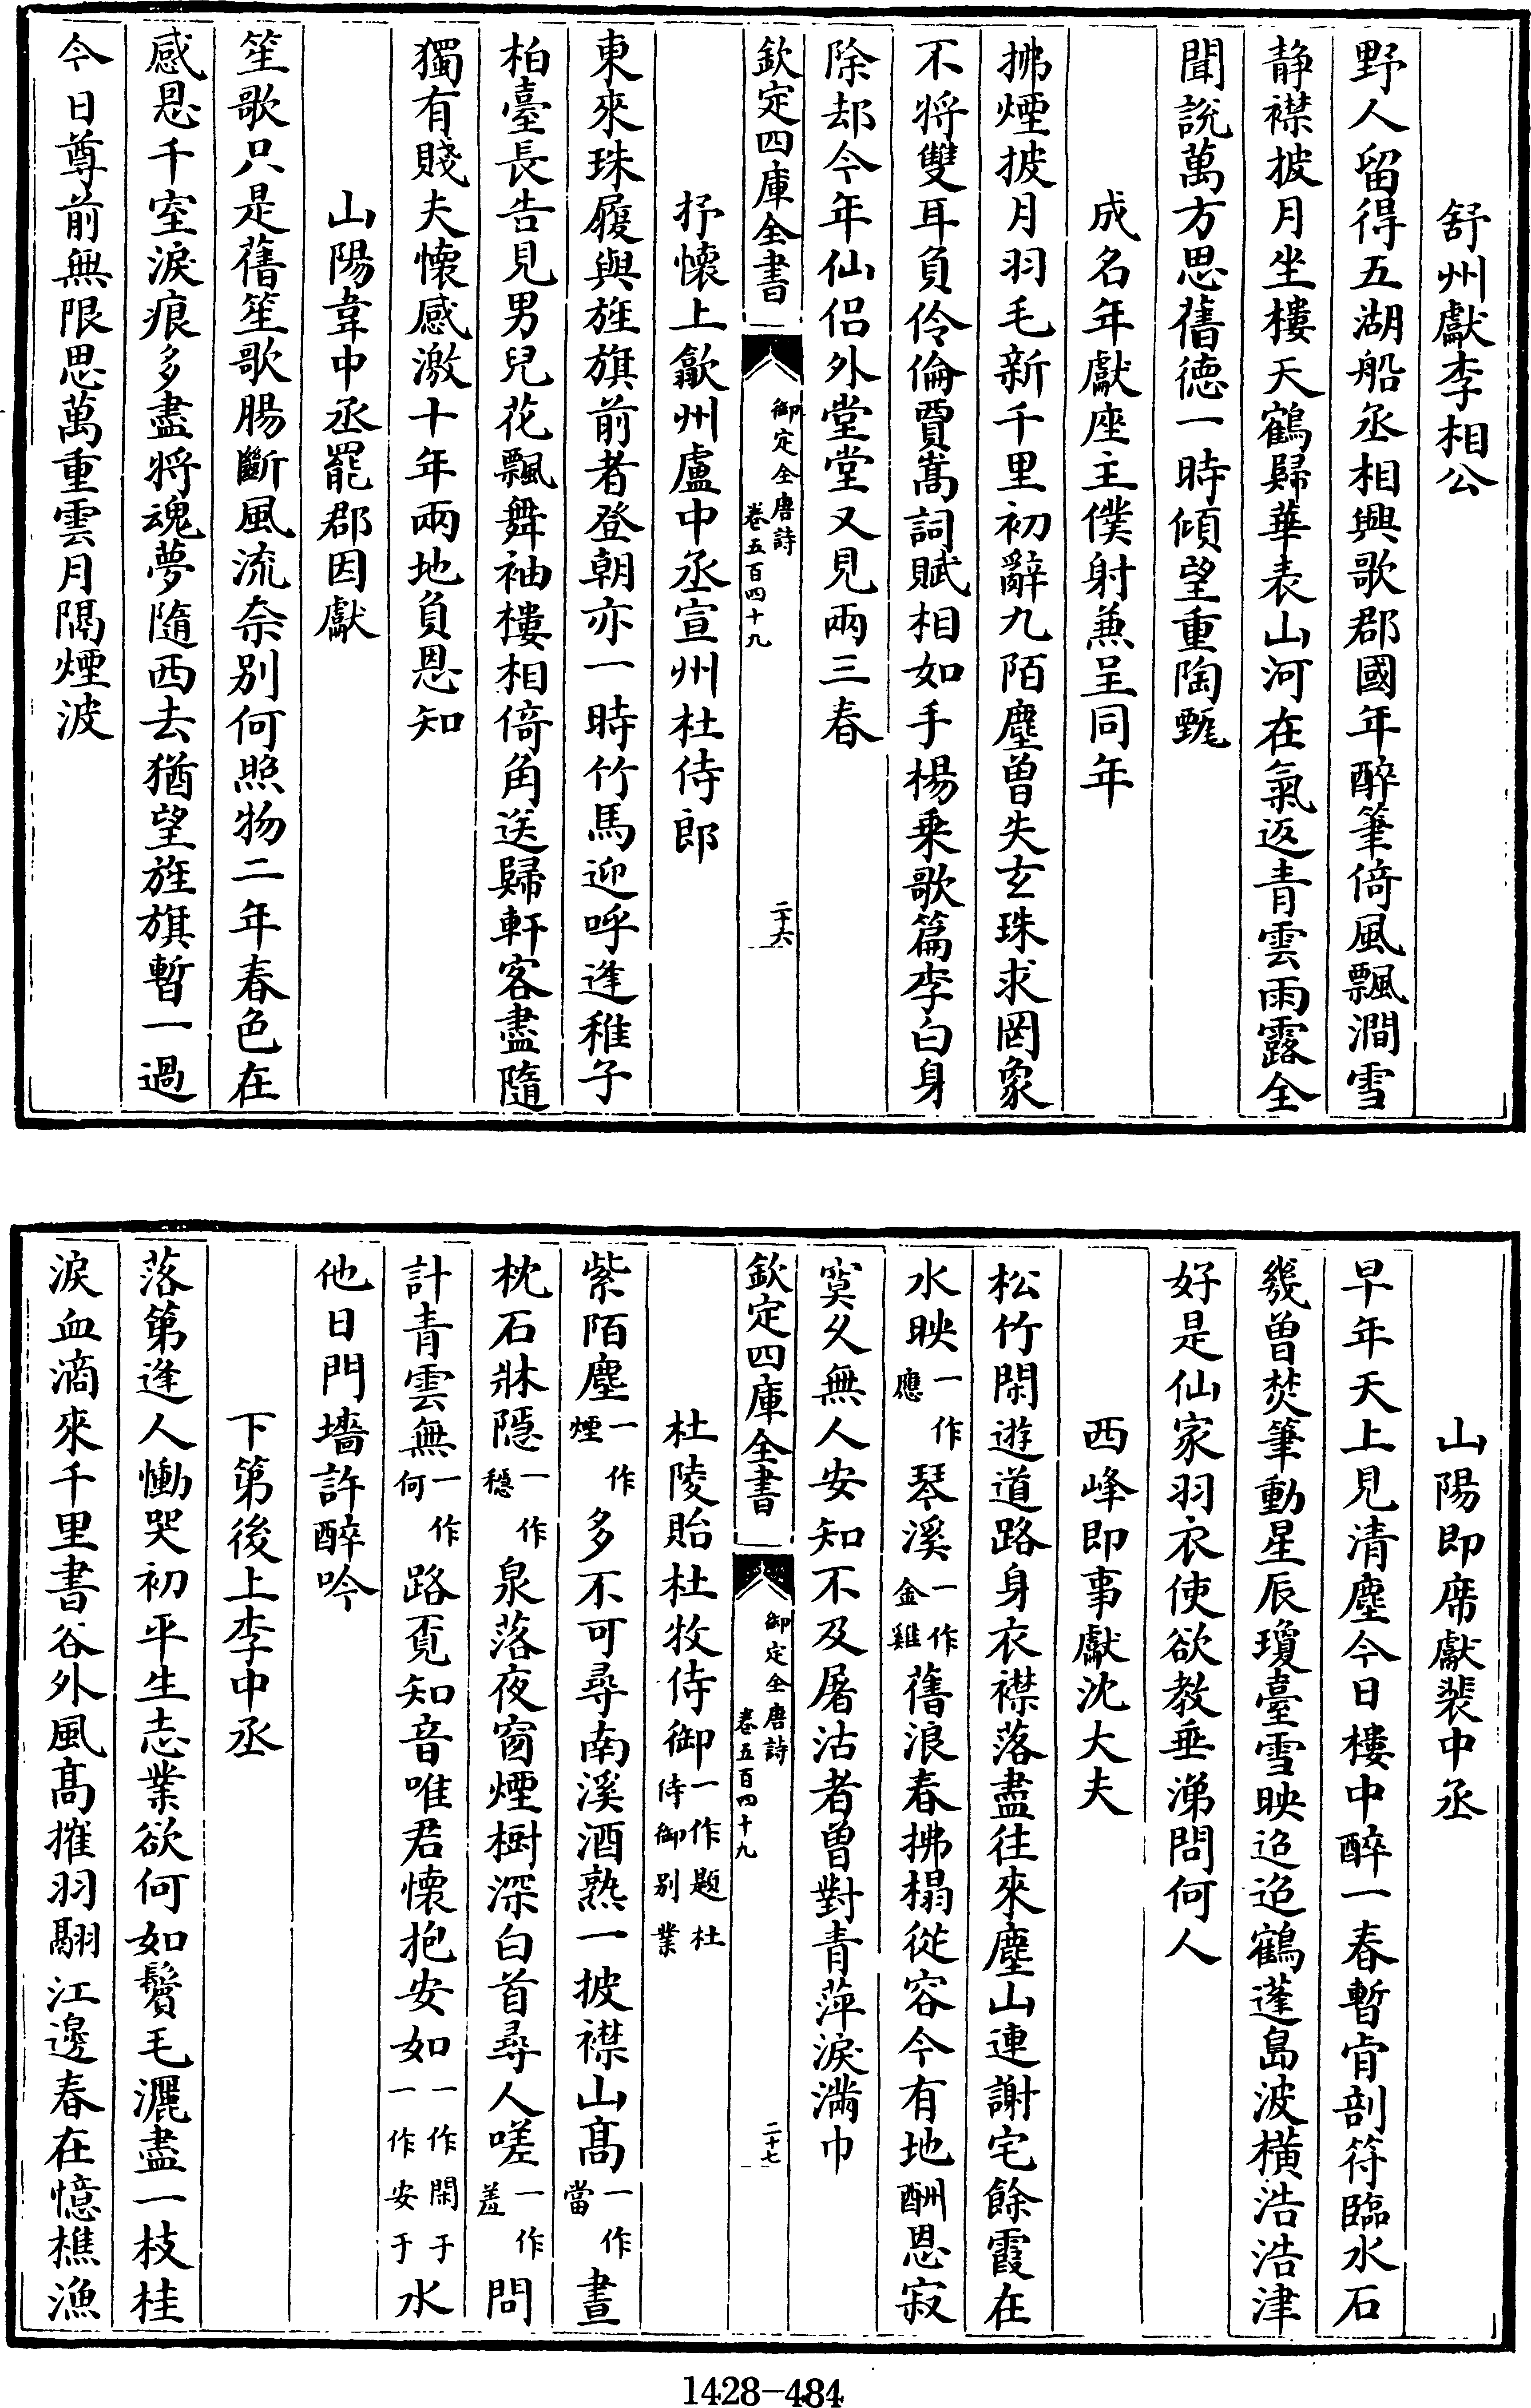 舒州獻李相公
野人留得五湖船丞相興歌郡國年醉筆倚風飄澗雪
静襟披月坐樓天鶴歸華表山河在氣返青雲雨露全
聞說萬方思舊徳一時傾望重陶甄
成名年獻座主僕射兼呈同年
拂煙披月羽毛新千里初辭九陌塵曽失玄珠求罔象
不將雙耳負伶倫賈嵩詞賦相如手楊乗歌篇李白身
除却今年仙侣外堂堂又見兩三春
欽定四庫全書
御定全唐詩
卷五百四十九
二十六
抒懐上歙州盧中丞宣州杜侍郎
東來珠履與旌旗前者登朝亦一時竹馬迎呼逢稚子
柏臺長告見男兒花飄舞袖樓相倚角送歸軒客盡隨
獨有賤夫懐感激十年兩地負恩知
山陽韋中丞罷郡因獻
笙歌只是舊笙歌腸斷風流奈别何照物二年春色在
感恩千室淚痕多盡將魂夢隨西去猶望旌旗暫一過
今日尊前無限思萬重雲月隔煙波
山陽即席獻裴中丞
早年天上見清塵今日樓中醉一春暫肯剖符臨水石
幾曽焚筆動星辰瓊臺雪映迢迢鶴蓬島波横浩浩津
好是仙家羽衣使欲教垂涕問何人
西峰即事獻沈大夫
松竹閑遊道路身衣襟落盡往來塵山連謝宅餘霞在
水映一作應琴溪一作金雞舊浪春拂榻從容今有地酬恩寂
寞久無人安知不及屠沽者曽對青萍淚滿巾
欽定四庫全書
御定全唐詩
卷五百四十九
二十七
杜陵貽杜牧侍御一作題杜侍御别業
紫陌塵一作煙多不可尋南溪酒熟一披襟山髙一作當晝
枕石牀隱一作穏泉落夜窗煙樹深白首尋人嗟一作羞問
計青雲無一作何路覓知音唯君懐抱安如一作閑于一作安于水
他日門墻許醉吟
下第後上李中丞
落第逢人慟哭初平生志業欲何如鬢毛灑盡一枝桂
淚血滴來千里書谷外風髙摧羽翮江邊春在憶樵漁
1428-484